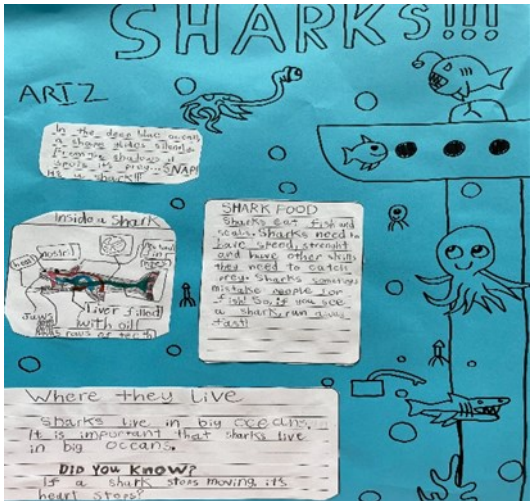 SHARKS!!!
ARIZ
In the deep blue ocean
a shape glides silently
From the shadows it
spots its prey... SNAP!
It's a shark!!!
Inside a Shark
nostril
Jaws
Liver filled
with oil
rows of teeth
SHARK FOOD
Sharks eat fish and
seals. Sharks need to
have speed, strenght
and have other skills
they need to catch
prey. Sharks sometimes
mistake people for
fish! So, if you see
a shark, run away
fast!
Where they Live
Sharks live in big oceans.
It is important that sharks live
in big oceans.
DID YOU KNOW?
If a shark stops moving, it's
heart stops?